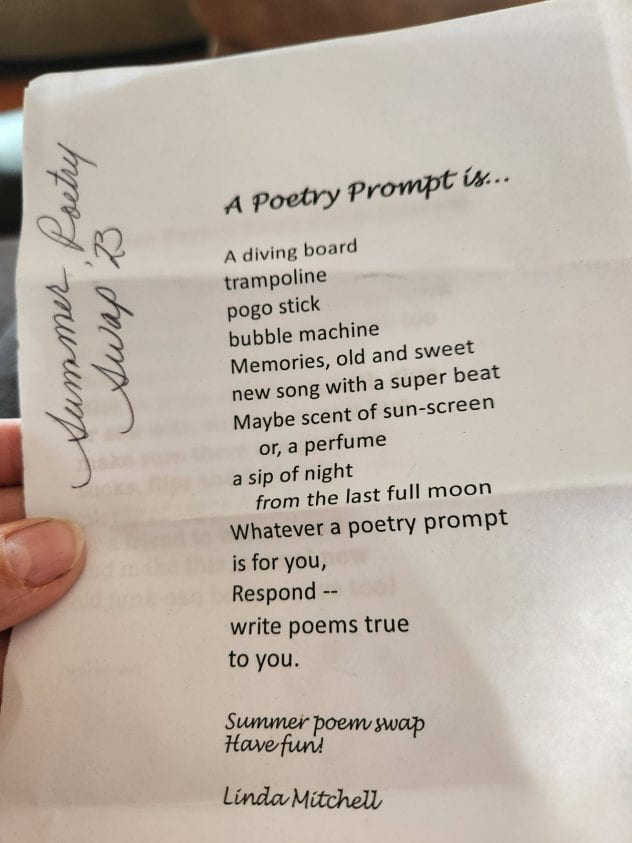 Summer Poetry
Swap '23
A Poetry Prompt is...
A diving board
trampoline
pogo stick
bubble machine
Memories, old and sweet
new song with a super beat
Maybe scent of sun-screen
or, a perfume
a sip of night
from the last full moon
Whatever a poetry prompt
is for you,
Respond --
write poems true
to you.
Summer poem swap
Have fun!
Linda Mitchell